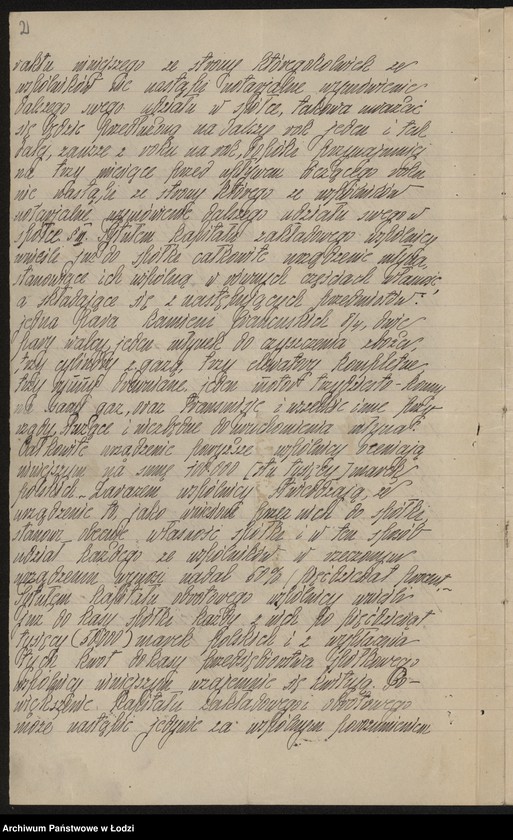 2
raktu niniejszego ze strony któregokolwiek ze
wspólników nie nastąpi notarjalne wymówienie
dalszego swego udziału w spółce, takowa uważać
się będzie przedłużoną na dalszy rok jeden i tak
dalej, zawsze z roku na rok, dopóki przynajmniej
na trzy miesiące przed upływem bieżącego roku
nie nastąpi ze strony którego ze wspólników
notarjalne wymówienie dalszego udziału swego w
spółce. § III. Tytułem kapitału zakładowego wspólnicy
wnieśli już do spółki całkowite urządzenie młyna,
stanowiące ich wspólną w równych częściach własność
a składające się z następujących przedmiotów:
jedna para kamieni francuskich 8/4, dwie
pary walcy, jeden młynek do czyszczenia zboża,
trzy cylindry z gazą, trzy elewatory kompletne,
trzy rynny drewniane, jeden motor trzydziesto-konny
na gaz, oraz transmisje i wszelkie inne przy-
rządy służące i niezbędne do uruchomienia młyna.
Całkowite urządzenie powyższe wspólnicy oceniają
niniejszym na sumę 100.000 (sto tysięcy) marek
polskich. Zarazem wspólnicy stwierdzają, że
urządzenie to jako wniesione przez nich do spółki
stanowi obecnie własność spółki i w ten sposób
udział każdego ze wspólników w rzeczonym
urządzeniu wynosi nadal 50% (pięćdziesiąt procent).
Tytułem kapitału obrotowego wspólnicy wnieśli
już do kasy spółki każdy z nich po pięćdziesiąt
tysięcy (50000) marek polskich i z wypłacenia
tych kwot do kasy przedsiębiorstwa spółkowego
wspólnicy niniejszym wzajemnie się kwitują. Po-
większenie kapitału zakładowego i obrotowego
może nastąpić jedynie za wspólnym porozumieniem
Archiwum Państwowe w Łodzi